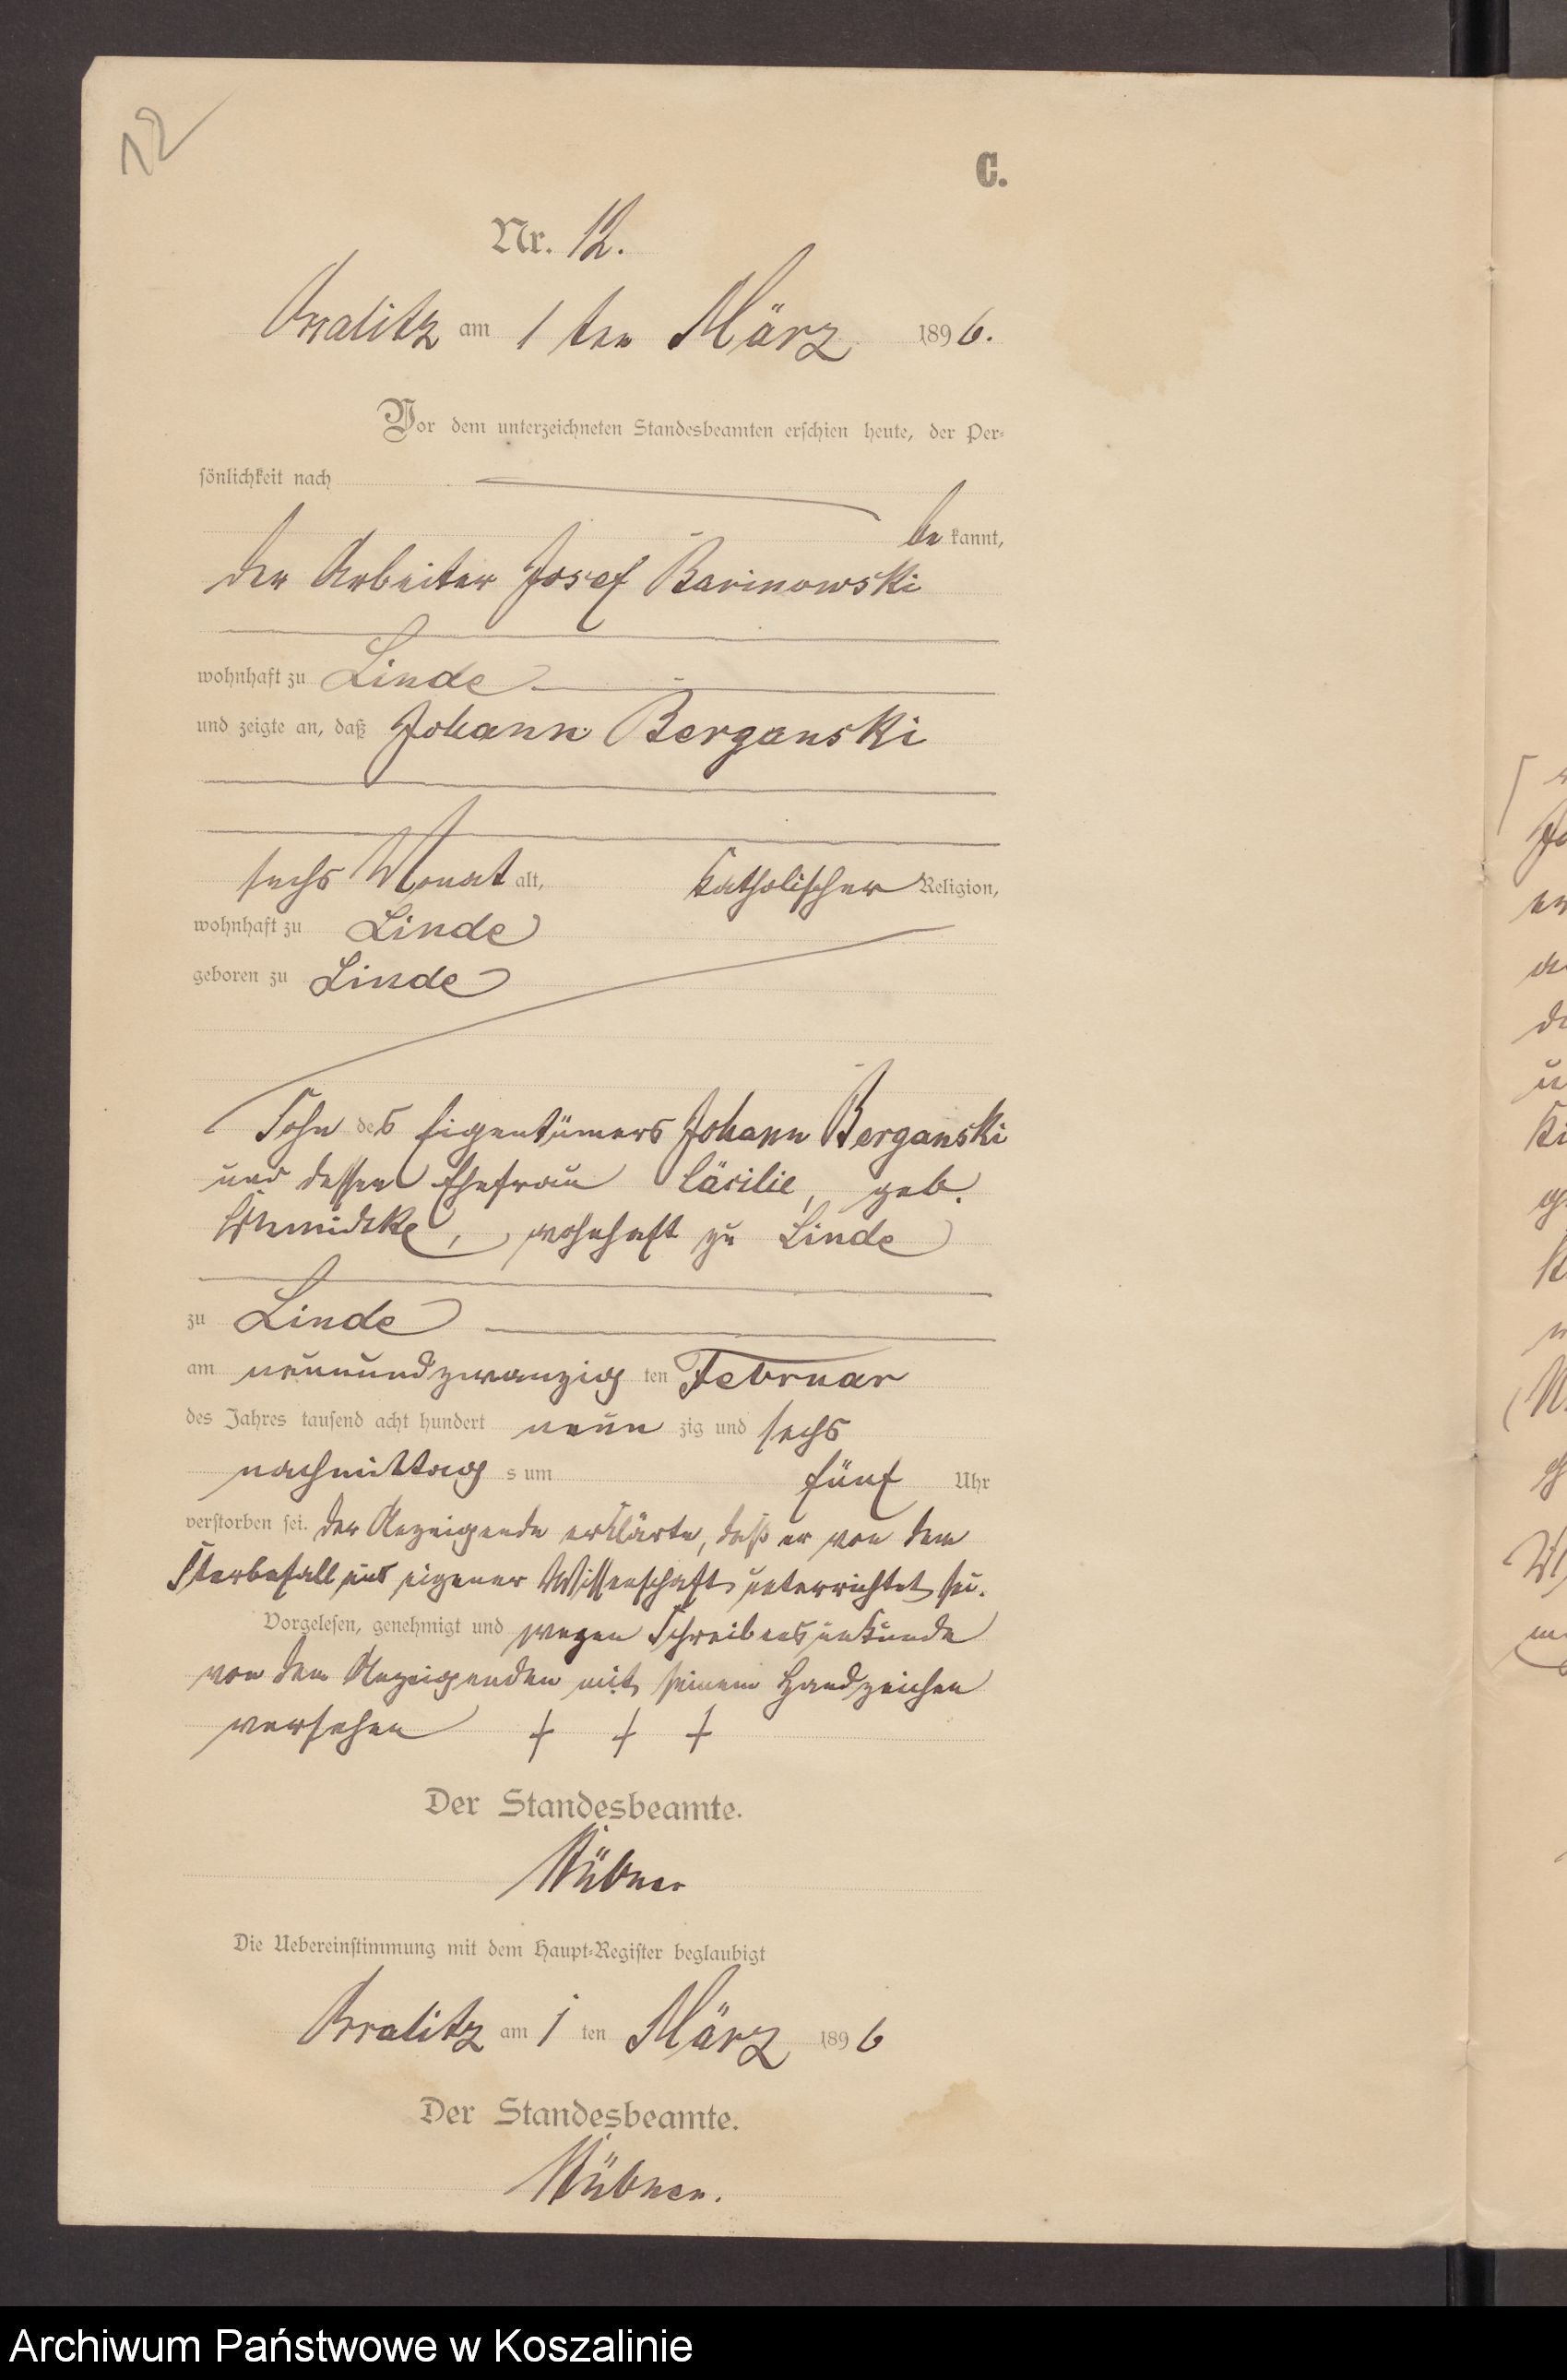 12
C.
Nr. 12.
am 1 ten März 1896.
Vor dem unterzeichneten Standesbeamten erschien heute, der Per-
sönlichkeit nach
be kannt,
der Arbeiter Josef Barinowski
wohnhaft zu Linde
und zeigte an, daß Johann Berganski
sechs Monat alt, katholischer Religion,
wohnhaft zu Linde
geboren zu Linde
Sohn des Eigentümers Johann Berganski
und dessen Ehefrau Cäcilie, geb.
Schmidtke, wohnhaft zu Linde
zu Linde
am neunundzwanzig ten Februar
des Jahres tausend acht hundert neun zig und sechs
nachmittag s um fünf Uhr
verstorben sei. Der Anzeigende erklärte, daß er von dem
Sterbefall aus eigener Wissenschaft unterrichtet sei.
Vorgelesen, genehmigt und wegen Schreibensunkunde
von dem Anzeigenden mit seinem Handzeichen
versehen + + +
Der Standesbeamte.
Die Uebereinstimmung mit dem Haupt-Register beglaubigt
am 1 ten März 1896
Der Standesbeamte.
Archiwum Państwowe w Koszalinie